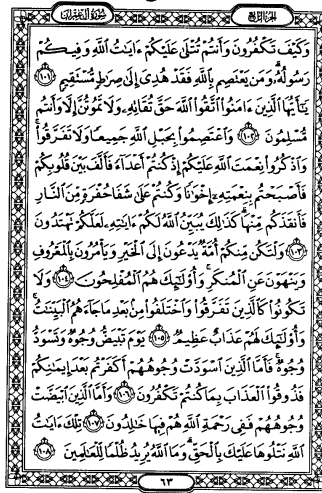 سُورَةُ آلِ عِمْرَانَ
الجُزْءُ الرَّابِعُ
وَكَيْفَ تَكْفُرُونَ وَأَنتُمْ تُتْلَىٰ عَلَيْكُمْ ءَايَٰتُ ٱللَّهِ وَفِيكُمْ
رَسُولُهُۥ ۗ وَمَن يَعْتَصِم بِٱللَّهِ فَقَدْ هُدِىَ إِلَىٰ صِرَٰطٍ مُّسْتَقِيمٍ ۝١٠١
يَٰٓأَيُّهَا ٱلَّذِينَ ءَامَنُوا۟ ٱتَّقُوا۟ ٱللَّهَ حَقَّ تُقَاتِهِۦ وَلَا تَمُوتُنَّ إِلَّا وَأَنتُم
مُّسْلِمُونَ ۝١٠٢ وَٱعْتَصِمُوا۟ بِحَبْلِ ٱللَّهِ جَمِيعًا وَلَا تَفَرَّقُوا۟ ۚ
وَٱذْكُرُوا۟ نِعْمَتَ ٱللَّهِ عَلَيْكُمْ إِذْ كُنتُمْ أَعْدَآءً فَأَلَّفَ بَيْنَ قُلُوبِكُمْ
فَأَصْبَحْتُم بِنِعْمَتِهِۦٓ إِخْوَٰنًا وَكُنتُمْ عَلَىٰ شَفَا حُفْرَةٍ مِّنَ ٱلنَّارِ
فَأَنقَذَكُم مِّنْهَا ۗ كَذَٰلِكَ يُبَيِّنُ ٱللَّهُ لَكُمْ ءَايَٰتِهِۦ لَعَلَّكُمْ تَهْتَدُونَ
۝١٠٣ وَلْتَكُن مِّنكُمْ أُمَّةٌ يَدْعُونَ إِلَى ٱلْخَيْرِ وَيَأْمُرُونَ بِٱلْمَعْرُوفِ
وَيَنْهَوْنَ عَنِ ٱلْمُنكَرِ ۚ وَأُو۟لَٰٓئِكَ هُمُ ٱلْمُفْلِحُونَ ۝١٠٤ وَلَا
تَكُونُوا۟ كَٱلَّذِينَ تَفَرَّقُوا۟ وَٱخْتَلَفُوا۟ مِنۢ بَعْدِ مَا جَآءَهُمُ ٱلْبَيِّنَٰتُ ۚ
وَأُو۟لَٰٓئِكَ لَهُمْ عَذَابٌ عَظِيمٌ ۝١٠٥ يَوْمَ تَبْيَضُّ وُجُوهٌ وَتَسْوَدُّ
وُجُوهٌ ۚ فَأَمَّا ٱلَّذِينَ ٱسْوَدَّتْ وُجُوهُهُمْ أَكَفَرْتُم بَعْدَ إِيمَٰنِكُمْ
فَذُوقُوا۟ ٱلْعَذَابَ بِمَا كُنتُمْ تَكْفُرُونَ ۝١٠٦ وَأَمَّا ٱلَّذِينَ ٱبْيَضَّتْ
وُجُوهُهُمْ فَفِى رَحْمَةِ ٱللَّهِ هُمْ فِيهَا خَٰلِدُونَ ۝١٠٧ تِلْكَ ءَايَٰتُ
ٱللَّهِ نَتْلُوهَا عَلَيْكَ بِٱلْحَقِّ ۗ وَمَا ٱللَّهُ يُرِيدُ ظُلْمًا لِّلْعَٰلَمِينَ ۝١٠٨
٦٣